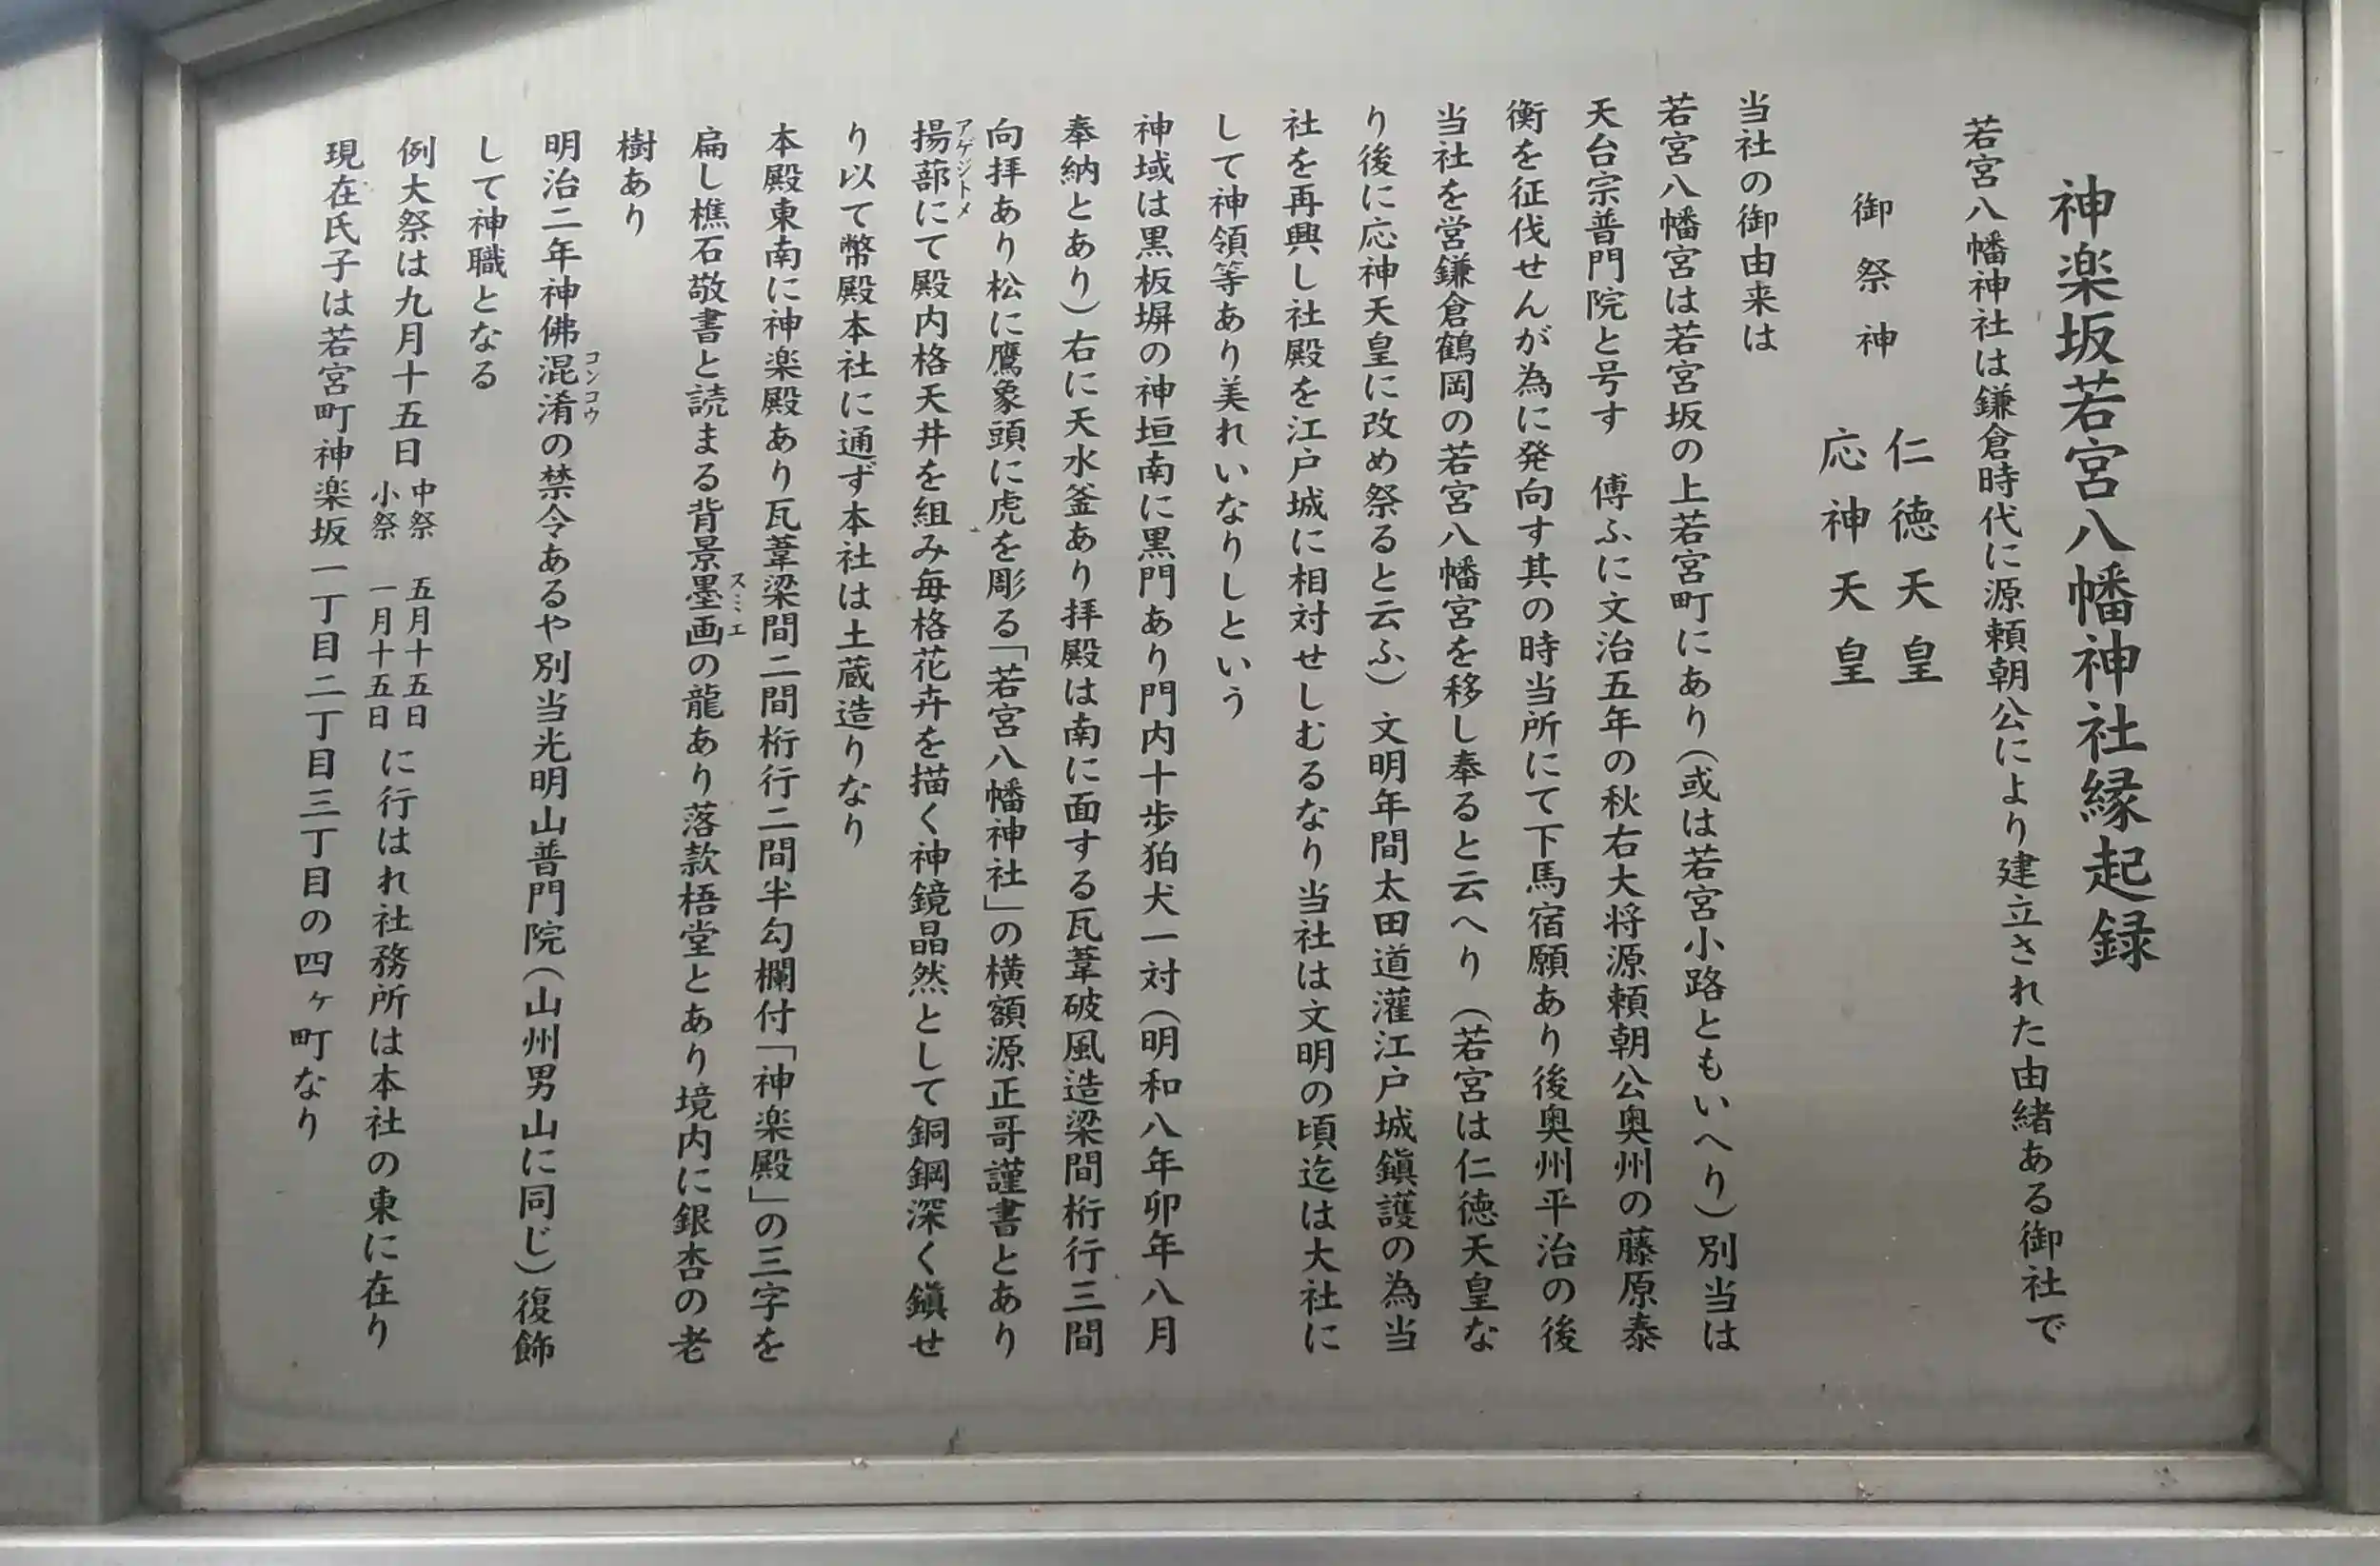 神楽坂若宮八幡神社縁起録
若宮八幡神社は鎌倉時代に源頼朝公により建立された由緒ある御社で
御祭神
仁徳天皇
応神天皇
当社の御由来は
若宮八幡宮は若宮坂の上若宮町にあり(或は若宮小路ともいへり)別当は
天台宗普門院と号す　傅ふに文治五年の秋右大将源頼朝公奥州の藤原泰
衡を征伐せんが為に発向す其の時当所にて下馬宿願あり後奥州平治の後
当社を営鎌倉鶴岡の若宮八幡宮を移し奉ると云へり(若宮は仁徳天皇な
り後に応神天皇に改め祭ると云ふ)文明年間太田道灌江戸城鎮護の為当
社を再興し社殿を江戸城に相対せしむるなり当社は文明の頃迄は大社に
して神領等あり美れいなりしという
神域は黒板塀の神垣南に黒門あり門内十歩狛犬一対(明和八年卯年八月
奉納とあり)右に天水釜あり拝殿は南に面する瓦葦破風造梁間桁行三間
向拝あり松に鷹象頭に虎を彫る「若宮八幡神社」の横額源正哥謹書とあり
揚蔀にて殿内格天井を組み毎格花卉を描く神鏡晶然として銅鋼深く鎮せ
アゲジトメ
り以て幣殿本社に通ず本社は土蔵造りなり
本殿東南に神楽殿あり瓦葦梁間二間桁行二間半勾欄付「神楽殿」の三字を
扁し樵石敬書と読まる背景墨画の龍あり落款梧堂とあり境内に銀杏の老
スミエ
樹あり
明治二年神佛混淆の禁令あるや別当光明山普門院(山州男山に同じ)復飾
コンコウ
して神職となる
例大祭は九月十五日 中祭 五月十五日 小祭 一月十五日 に行はれ社務所は本社の東に在り
現在氏子は若宮町神楽坂一丁目二丁目三丁目の四ヶ町なり